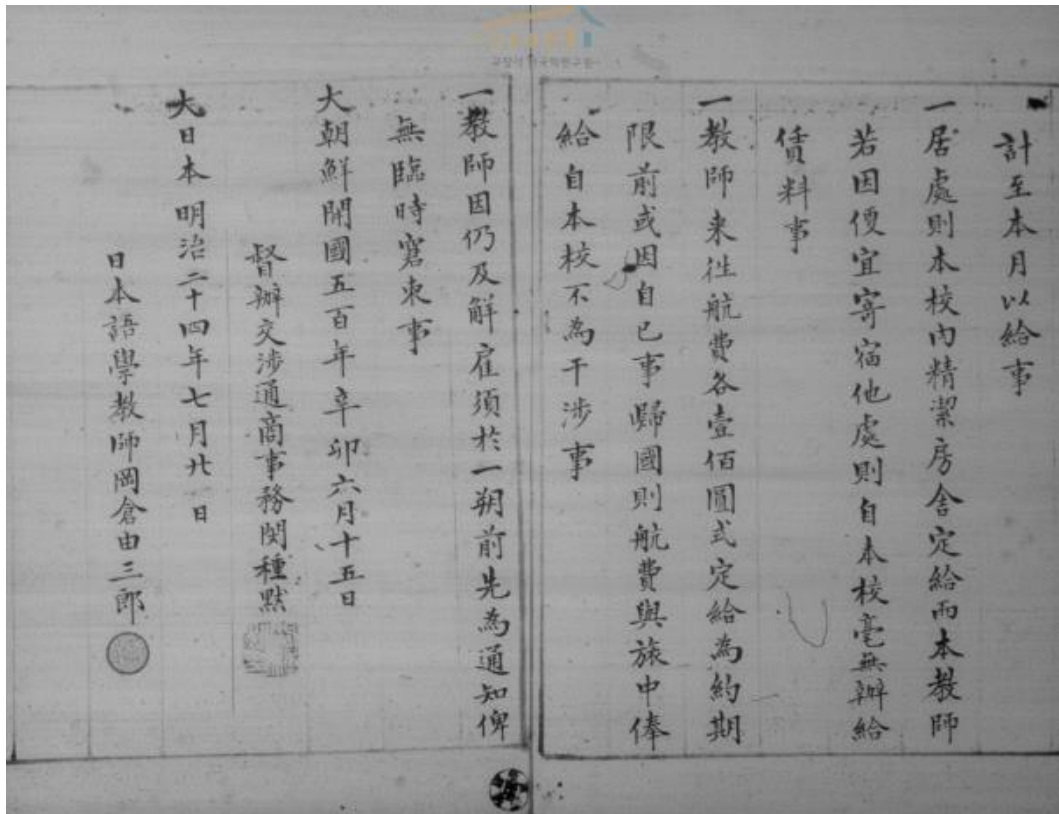 計至本月以給事
一居處則本校內精潔房舍定給而本教師
若因便宜寄宿他處則自本校毫無辦給
賃料事
一教師來往航費各壹佰圓式定給為約期
限前或因自己事歸國則航費與旅中俸
給自本校不為干涉事
一教師因仍及解雇須於一朔前先為通知俾
無臨時窘束事
大朝鮮開國五百年辛卯六月十五日
督辦交涉通商事務閔種默
大日本明治二十四年七月廿日
日本語學教師岡倉由三郎